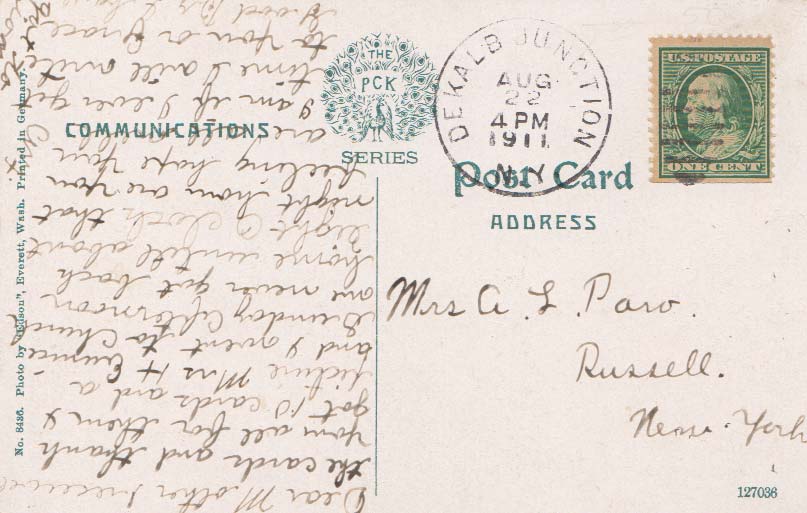 COMMUNICATIONS
THE
PCK
SERIES
DEKALB JUNCTION
AUG
22
4 PM
1911
N.Y.
U.S. POSTAGE
ONE CENT
Post Card
ADDRESS
Mrs A. L. Paro.
Russell.
New York
127036
No. 8436. Photo by "Edson", Everett, Wash. Printed in Germany.
Dear Mother I received
the cards and thank
you all for them I
got 10 cards and a
picture Mrs H
and I went to
Sunday Afternoon
are never got back
home untill about
eight O cloth that
night how are you
feeling hope you
are all well
I am if I ever get
time I will write
to you or Grace
Good By